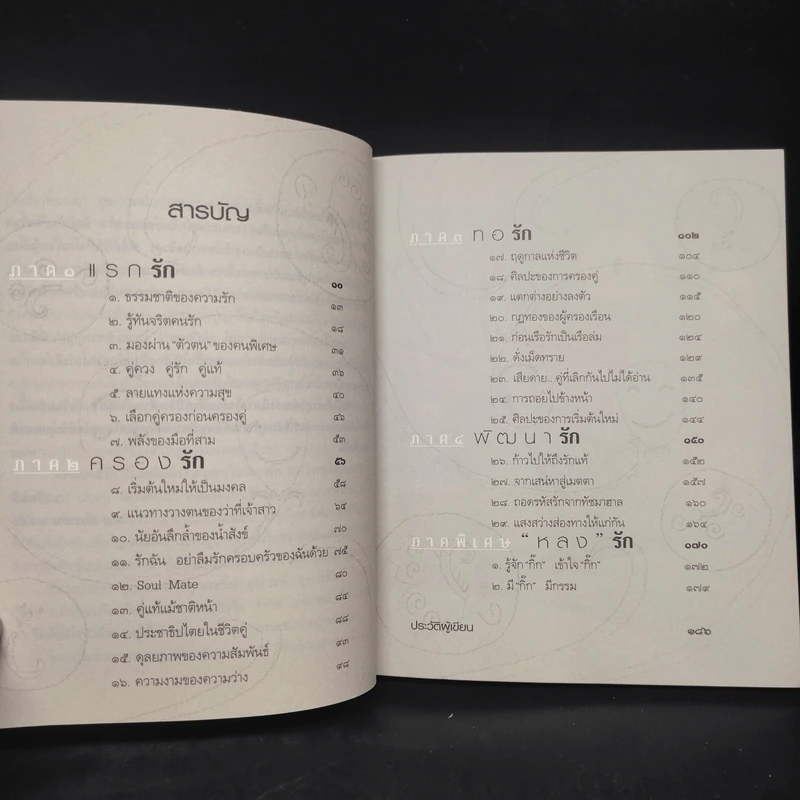 สารบัญ
ภาค๑ แรกรัก ๑๐
๑. ธรรมชาติของความรัก ๑๓
๒. รู้ทันจริตคนรัก ๑๘
๓. มองผ่าน "ตัวตน" ของคนพิเศษ ๓๑
๔. คู่ควง คู่รัก คู่แท้ ๓๖
๕. ลายแทงแห่งความสุข ๔๐
๖. เลือกคู่ครองก่อนครองคู่ ๔๖
๗. พลังของมือที่สาม ๕๓
ภาค๒ ครองรัก ๕๖
๘. เริ่มต้นใหม่ให้เป็นมงคล ๕๘
๙. แนวทางวางตนของว่าที่เจ้าสาว ๖๔
๑๐. นัยอันลึกล้ำของน้ำสังข์ ๗๐
๑๑. รักฉัน อย่าลืมรักครอบครัวของฉันด้วย ๗๕
๑๒. Soul Mate ๘๐
๑๓. คู่แท้แม้ชาติหน้า ๘๔
๑๔. ประชาธิปไตยในชีวิตคู่ ๘๘
๑๕. ดุลยภาพของความสัมพันธ์ ๙๓
๑๖. ความงามของความว่าง ๙๘
ภาค๓ ทอรัก ๑๐๒
๑๗. ฤดูกาลแห่งชีวิต ๑๐๔
๑๘. ศิลปะของการครองคู่ ๑๑๐
๑๙. แตกต่างอย่างลงตัว ๑๑๕
๒๐. กฎทองของผู้ครองเรือน ๑๒๐
๒๑. ก่อนเรือรักเป็นเรือล่ม ๑๒๔
๒๒. ดั่งเม็ดทราย ๑๒๙
๒๓. เสียดาย..คู่ที่เลิกกันไปไม่ได้อ่าน ๑๓๕
๒๔. การถอยไปข้างหน้า ๑๔๐
๒๕. ศิลปะของการเริ่มต้นใหม่ ๑๔๔
ภาค๔ พัฒนารัก ๑๕๐
๒๖. ก้าวไปให้ถึงรักแท้ ๑๕๒
๒๗. จากเสน่หาสู่เมตตา ๑๕๗
๒๘. ถอดรหัสรักจากทัชมาฮาล ๑๖๐
๒๙. แสงสว่างส่องทางให้แก่กัน ๑๖๔
ภาคพิเศษ "หลง" รัก ๑๗๐
๑. รู้จัก "กิ๊ก" เข้าใจ "กิ๊ก" ๑๗๒
๒. มี "กิ๊ก" มีกรรม ๑๗๙
ประวัติผู้เขียน ๑๘๖